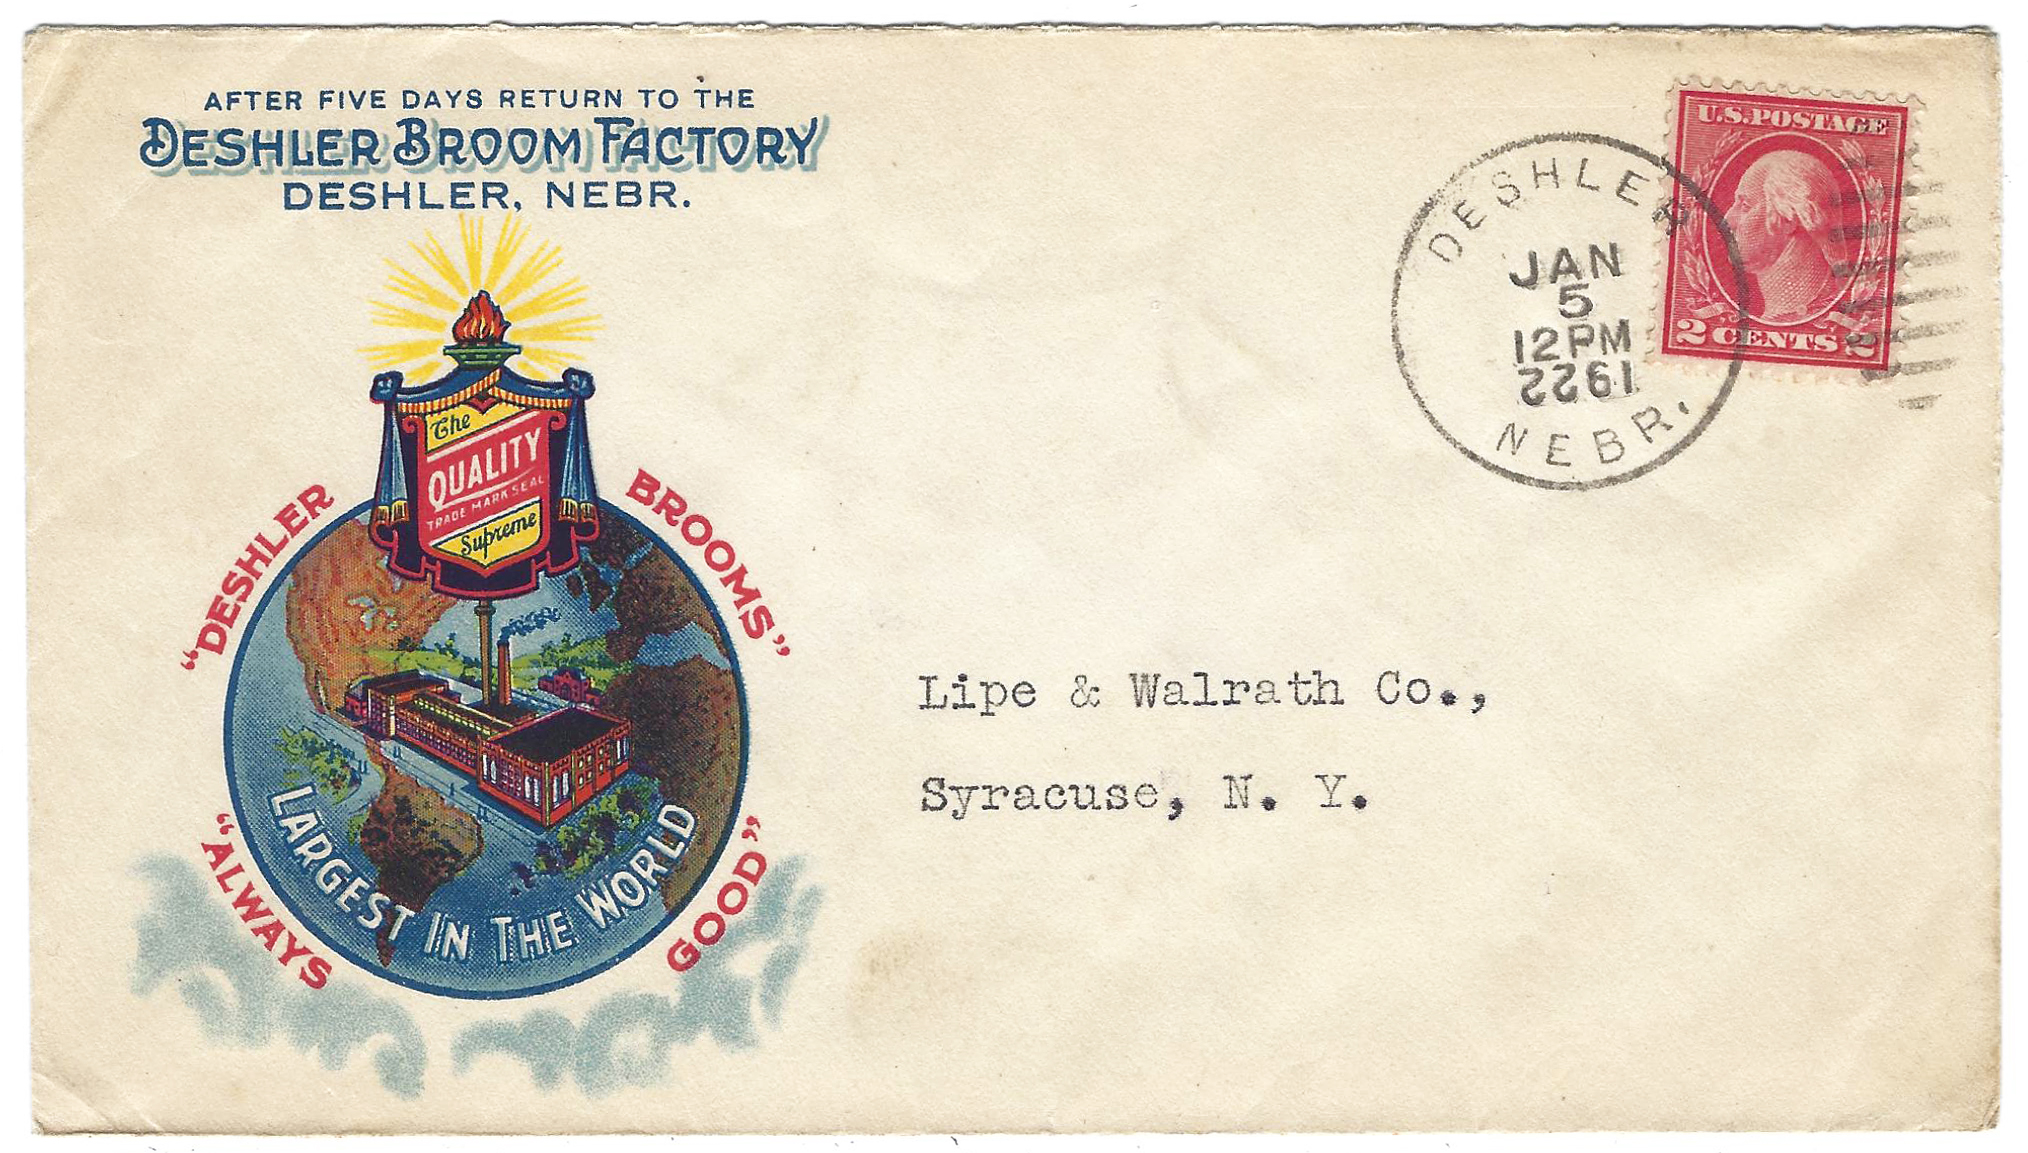 AFTER FIVE DAYS RETURN TO THE
DESHLER BROOM FACTORY
DESHLER, NEBR.
The
QUALITY
TRADE MARK SEAL
Supreme
"DESHLER BROOMS"
"ALWAYS GOOD"
LARGEST IN THE WORLD
DESHLER
JAN
5
12PM
1922
NEBR.
U.S.POSTAGE
2 CENTS 2
Lipe & Walrath Co.,
Syracuse, N. Y.